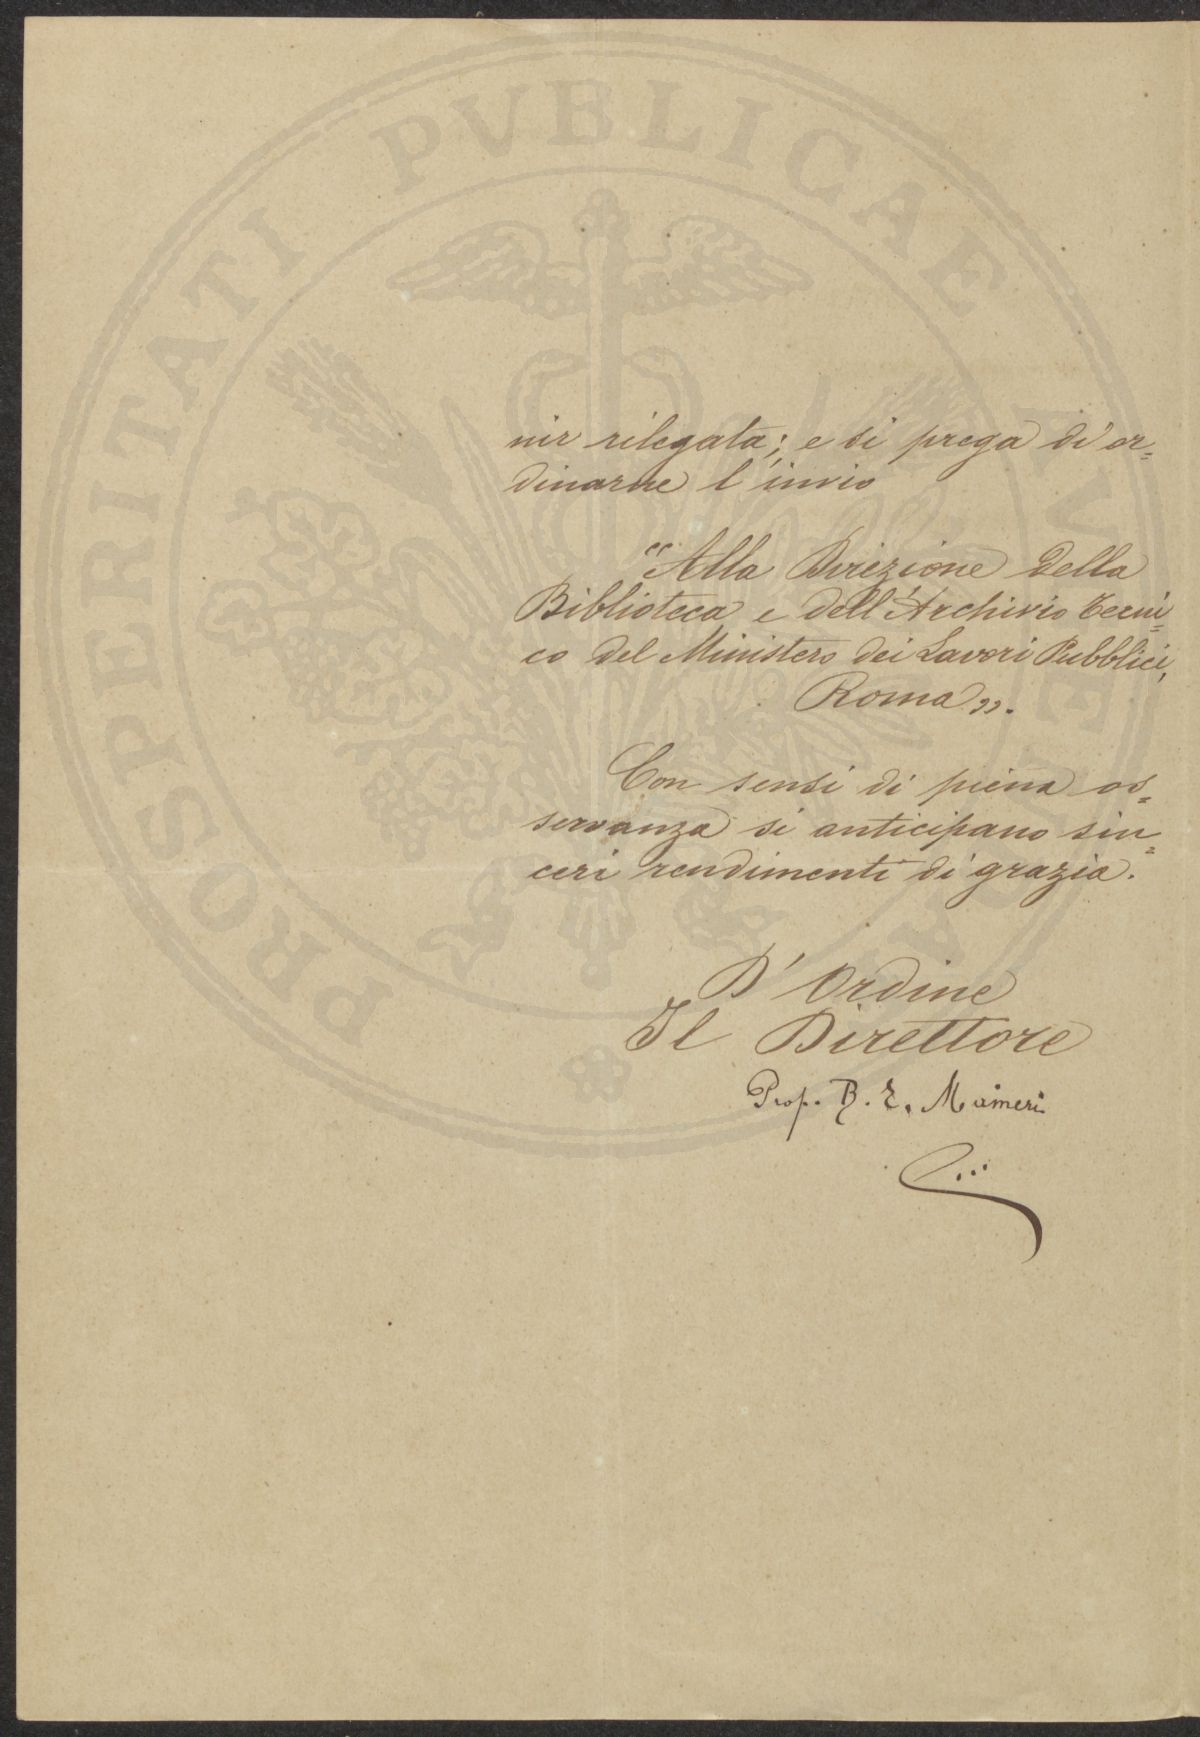 PROSPERITATI PVBLICAE AVGENDAE
nir rilegata; e si prega di or=
dinarne l'invio
"Alla Direzione della
Biblioteca e dell'Archivio tecni=
co del Ministero dei Lavori Pubblici,
Roma".
Con sensi di piena os=
servanza si anticipano sin=
ceri rendimenti di grazia.
D'Ordine
Il Direttore
Prof. B. E. Maineri